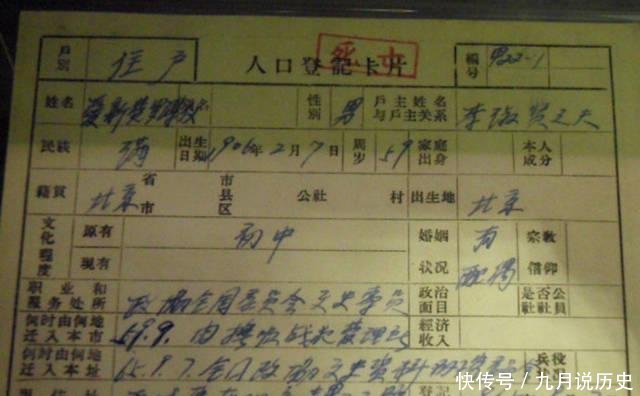 戶別 住户 人口登記卡片 死亡 編号
姓名 爱新觉罗溥 性別 男 戶主姓名与戶主关系 李淑贤之夫
民族 满 出生日期 1906年2月7日 周岁 59 家庭出身 本人成分
籍貫 北京 省市 市县区 公社 村 出生地 北京
文化程度 原有 初中 婚姻状况 有配偶 宗教信仰
現有
职业和服务处所 政协全国委员会文史专员 政治面目 是否公社社員
何时由何地迁入本市 59.9. 由抚顺战犯管理所 經济收入
何时由何地迁入本址 65.9.7. 全国政协文史资料 兵役
登記
快传号 / 九月说历史